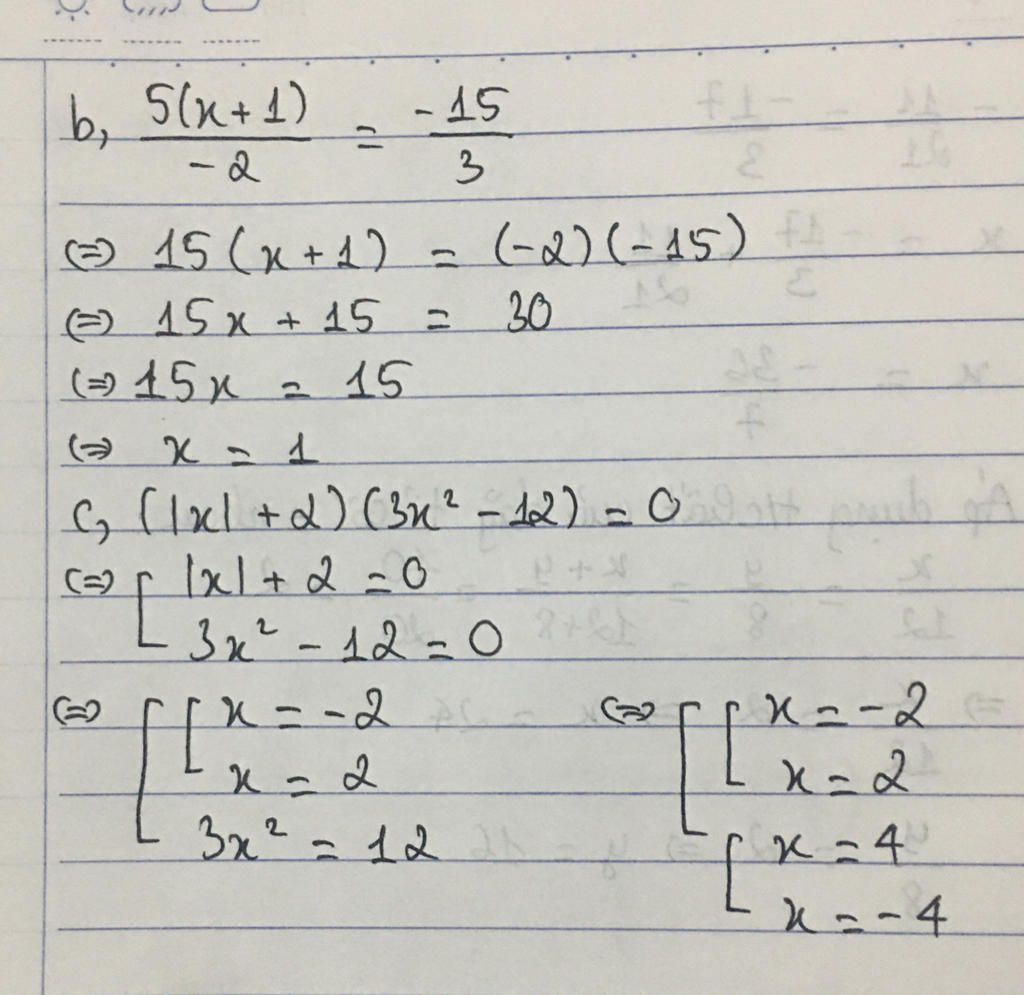 b, 5(x+1)/-2 = -15/3
(=) 15(x+1) = (-2)(-15)
(=) 15x + 15 = 30
(=) 15x = 15
(=) x = 1
c, (|x| + 2)(3x² - 12) = 0
(=) [ |x| + 2 = 0
3x² - 12 = 0
(=) [ [ x = -2
x = 2
3x² = 12
(=) [ [ x = -2
x = 2
[ x = 4
x = -4